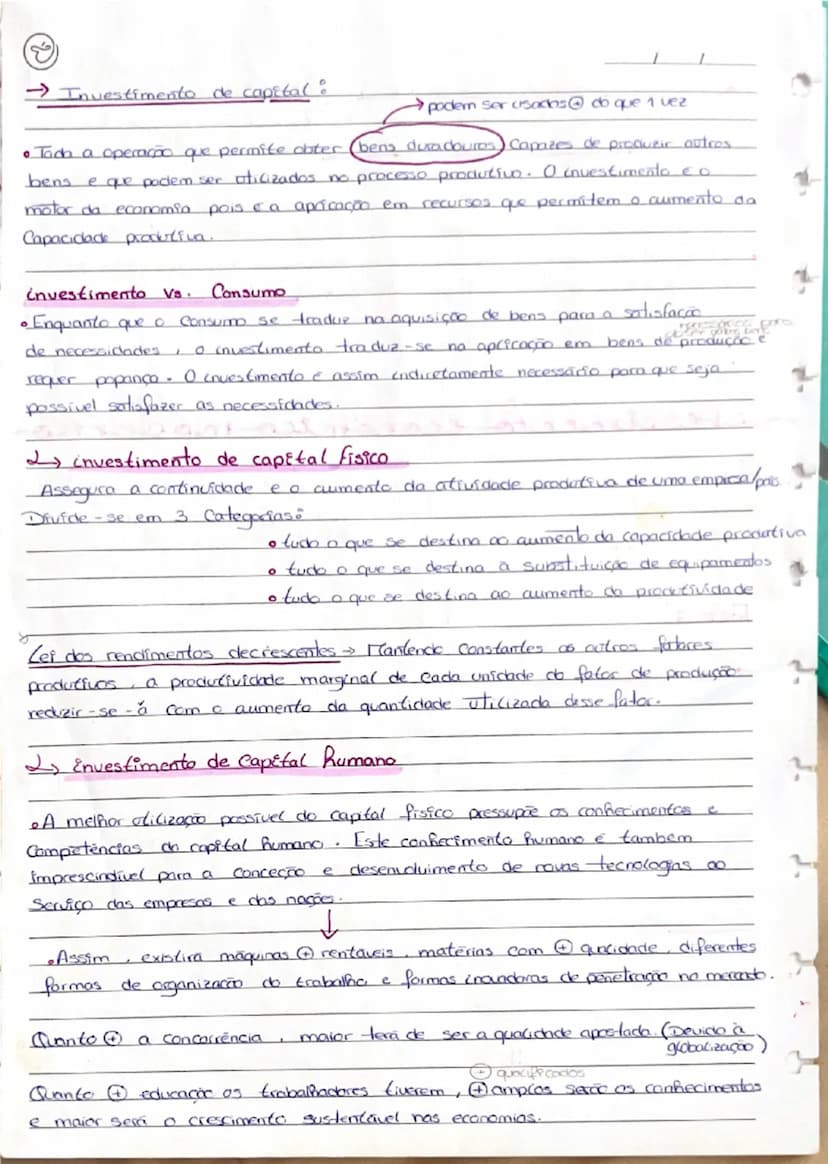 → Investimento de capital:
→ podem ser usados ⊕ do que 1 vez
• Toda a operação que permite obter bens duradouros capazes de produzir outros
bens e que podem ser utilizados no processo produtivo. O investimento é o
motor da economia pois é a aplicação em recursos que permitem o aumento da
Capacidade produtiva.
investimento vs. Consumo
• Enquanto que o Consumo se traduz na aquisição de bens para a satisfação
necessários para
obter outros bens
de necessidades, o investimento traduz-se na aplicação em bens de produção e
requer popança. O investimento é assim indiretamente necessário para que seja
possível satisfazer as necessidades.
↳ investimento de capital físico
Assegura a continuidade e o aumento da atividade produtiva de uma empresa/país
Divide-se em 3 Categorias:
• tudo o que se destina ao aumento da capacidade produtiva
• tudo o que se destina à substituição de equipamentos
• tudo o que se destina ao aumento da produtividade
Lei dos rendimentos decrescentes → Mantendo Constantes os outros fatores
produtivos, a produtividade marginal de cada unidade do fator de produção
reduzir-se-á com o aumento da quantidade utilizada desse fator.
↳ investimento de capital humano
• A melhor utilização possível do capital físico pressupõe os conhecimentos e
Competências do capital humano. Este conhecimento humano é também
imprescindível para a conceção e desenvolvimento de novas tecnologias ao
Serviço das empresas e das nações.
↓
• Assim, existirá máquinas ⊕ rentáveis, matérias com ⊕ qualidade, diferentes
formas de organização do trabalho e formas inovadoras de penetração no mercado.
Quanto ⊕ a concorrência, maior terá de ser a qualidade apostada. (Devido à
globalização)
⊕ qualificados
Quanto ⊕ educação os trabalhadores tiverem, ⊕ amplos serão os conhecimentos
e maior será o crescimento sustentável nas economias.